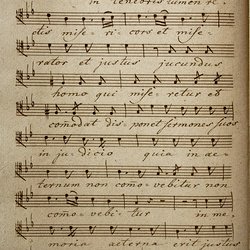 in tenebris lumen re-
ctis mise- ri- cors et mise-
rator et justus jucundus
homo qui mise- retur et
comodat dis- ponet sermones suos
in ju- dicio quia in ae-
ternum non como- vebitur non
como- vebi- tur in me-
moria aeterna erit justus